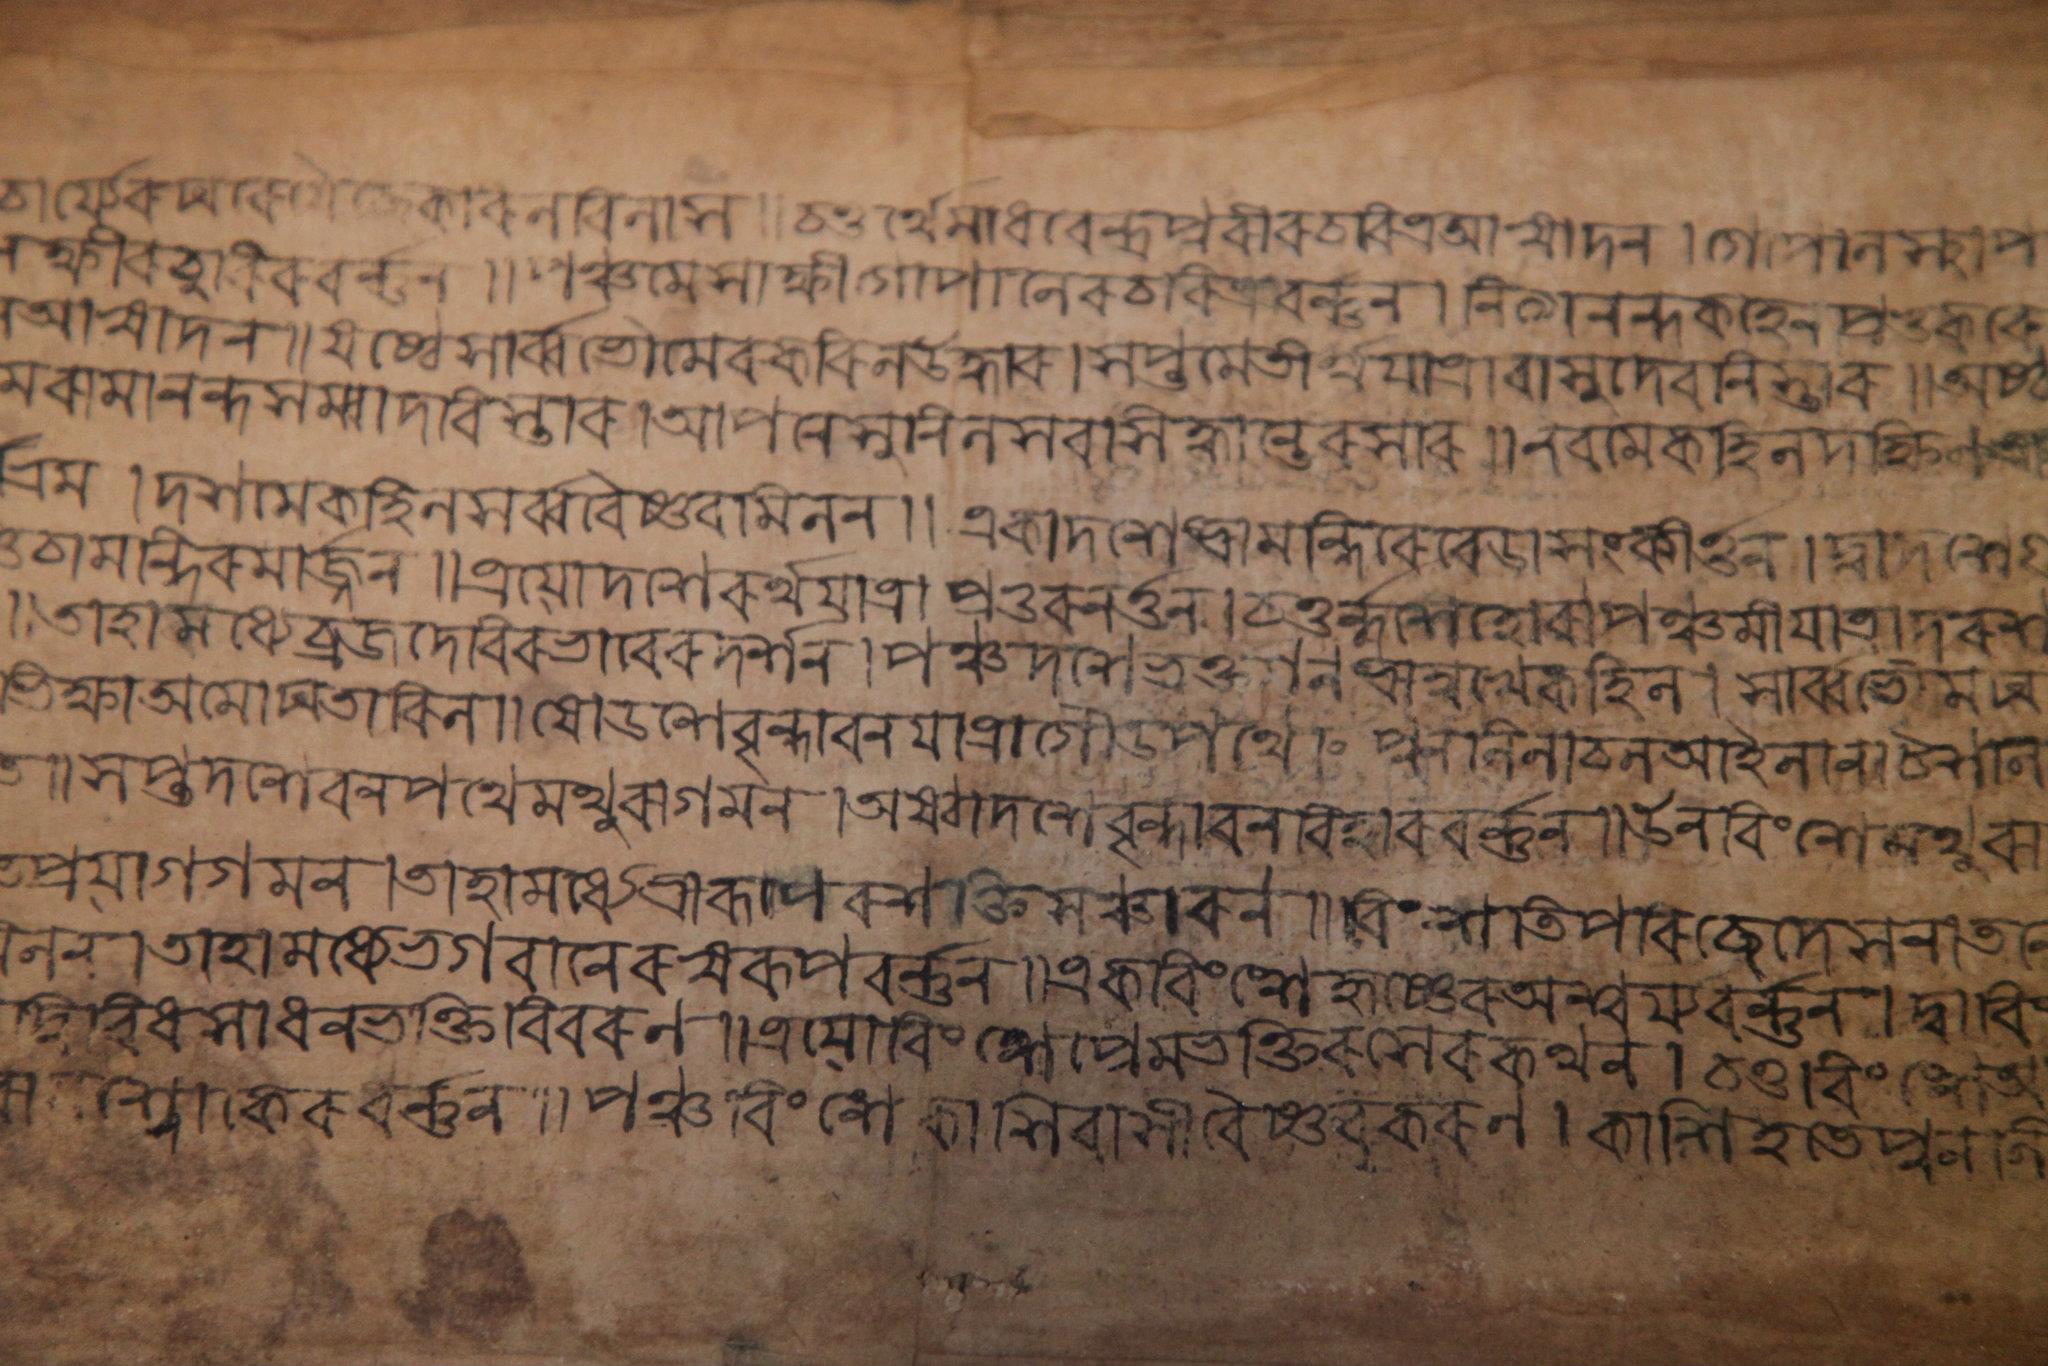 চার্য্যের ঘরে যৈছে করিল বিলাস ॥ চতুর্থে মাধবেন্দ্রপুরীর চরিত্র আস্বাদন । গোপাল স্থাপ
ক্ষীর চুরির বর্ন্নন ॥ পঞ্চমে সাক্ষী গোপালের চরিত্র বর্ন্নন । নিত্যানন্দ কহেন প্রভু করে
ন আস্বাদন ॥ ষষ্ঠে সার্ব্বভৌমের করিল উদ্ধার । সপ্তমে তীর্থযাত্রা বাসুদেব নিস্তার ॥ অষ্ট
মে রামানন্দ সম্বাদ বিস্তার । আপনে সুনিল সব্বসিদ্ধান্তের সার ॥ নবমে কহিল দক্ষিণ
ভ্রম । দশমে কহিল সর্ব্ব বৈষ্ণব মিলন ॥ একাদশে শ্রীমন্দিরে বেড়া সংকীর্ত্তন । দ্বাদশে গু
ণ্ডিচা মন্দির মার্জ্জন ॥ ত্রয়োদশে রথযাত্রা প্রভুর নর্ত্তন । চতুর্দ্দশে হোরা পঞ্চমী যাত্রা দরশ
॥ তাহা মধ্যে ব্রজদেবির ভাবের দর্শন । পঞ্চদশে ভক্তগুন শ্রীমুখে কহিল । সার্ব্বভৌম ঘ
ভিক্ষা অমোঘ তারিল ॥ ষোড়শে বৃন্দাবন যাত্রা গৌড় পথে । পুন নিলাচল আইলা
॥ সপ্তদশে বনপথে মথুরা গমন । অষ্টাদশে বৃন্দাবন বিহার বর্ন্নন ॥ উনবিংশে মথুরা
প্রয়াগ গমন । তাহা মধ্যে শ্রীরূপের শক্তি সঞ্চারন ॥ বিংশতি পরিচ্ছেদে সনাতনে
মিলন । তাহা মধ্যে ভগবানের স্বরূপ বর্ন্নন ॥ একবিংশে কৃষ্ণের অশ্বর্য্য বর্ন্নন । দ্বাবিং
দ্বিবিধ সাধনভক্তি বিবরন ॥ ত্রয়োবিংশে প্রেমভক্তি রসের কথন । চতুর্বিংশে আ
শ্লোকের বর্ন্নন ॥ পঞ্চবিংশে কাশিবাসী বৈষ্ণব করন । কাশি হতে পুন